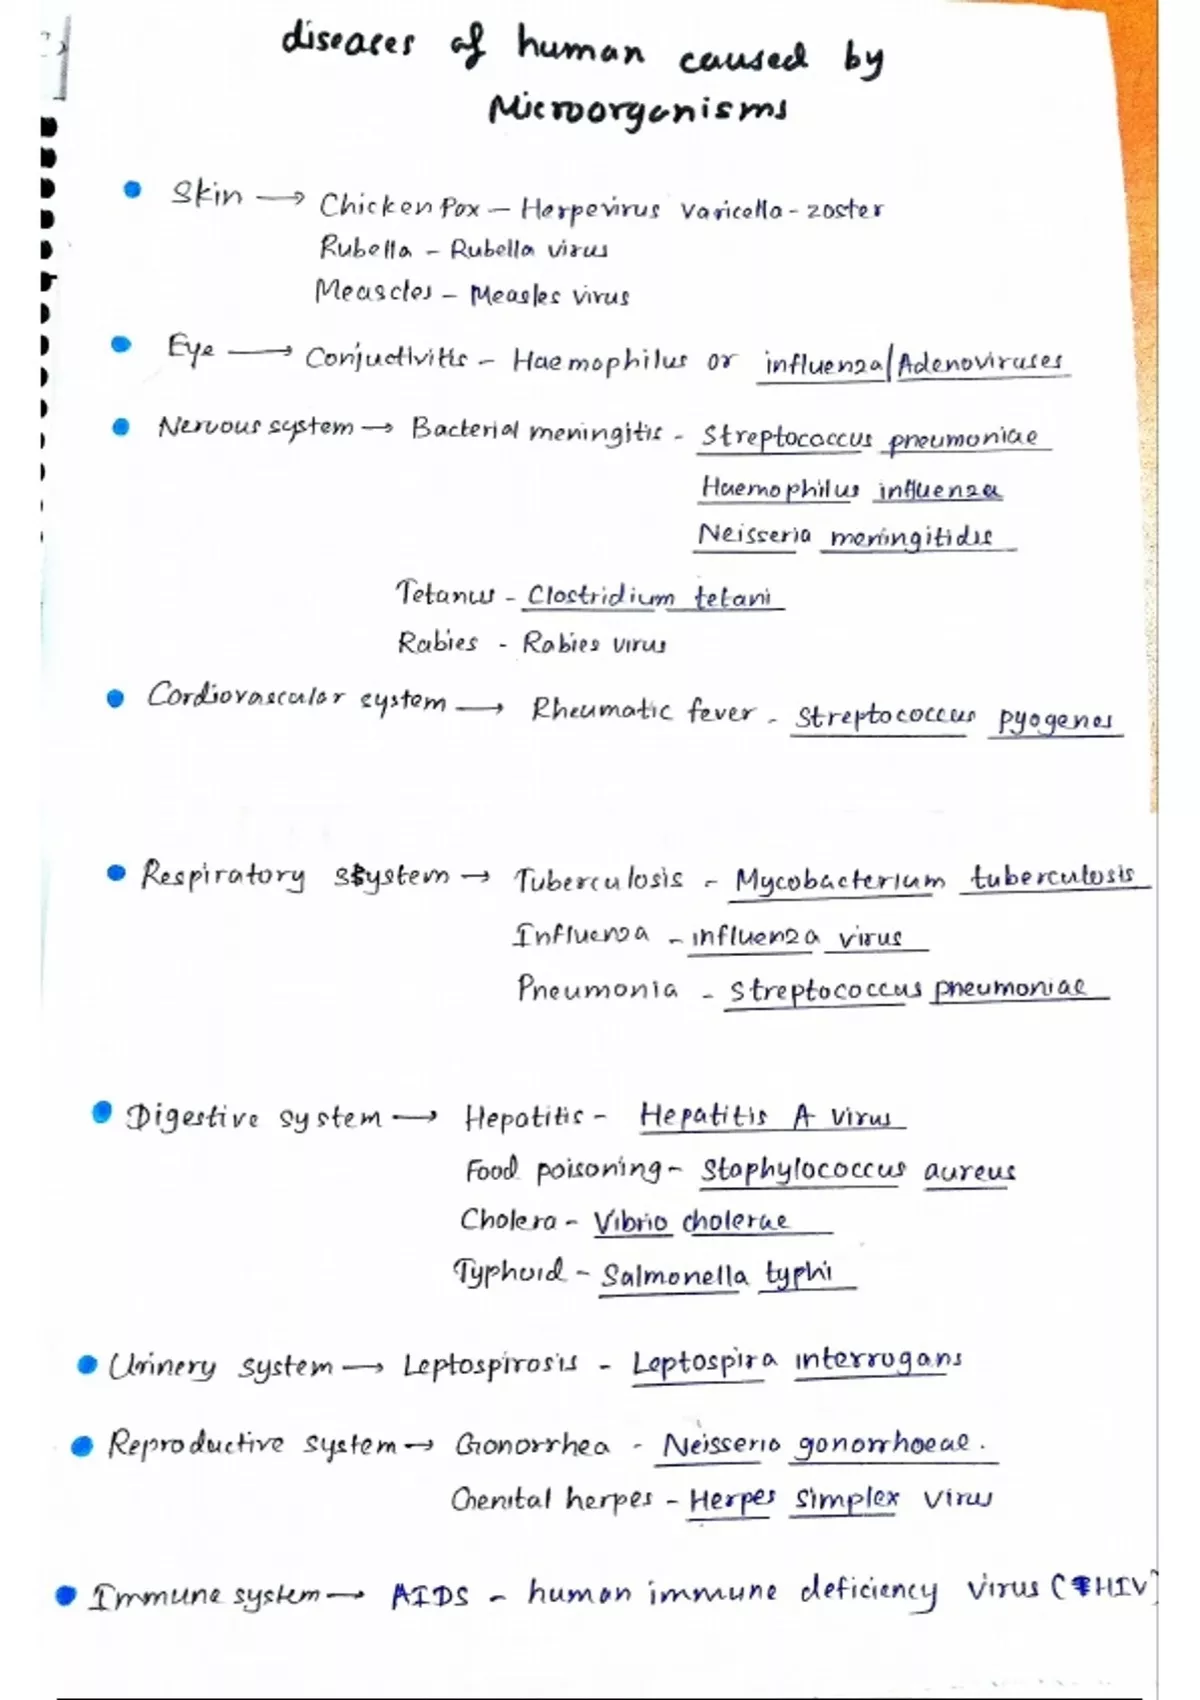 diseases of human caused by
Microorganisms
Skin → Chicken Pox – Herpevirus varicella-zoster
Rubella – Rubella virus
Meascles – Measles virus
Eye → Conjuctivitis – Haemophilus or influenza/Adenoviruses
Nervous system → Bacterial meningitis - Streptococcus pneumoniae
Haemophilus influenza
Neisseria meningitidis
Tetanus - Clostridium tetani
Rabies - Rabies virus
Cordiovascular system → Rheumatic fever - Streptococcus pyogenes
Respiratory system → Tuberculosis - Mycobacterium tuberculosis
Influenza - influenza virus
Pneumonia - Streptococcus pneumoniae
Digestive system → Hepatitis - Hepatitis A virus
Food poisoning - Staphylococcus aureus
Cholera - Vibrio cholerae
Typhoid - Salmonella typhi
Urinery system → Leptospirosis - Leptospira interrogans
Reproductive system → Gonorrhea - Neisseria gonorrhoeae.
Genital herpes - Herpes simplex virus
Immune system → AIDS - human immune deficiency virus (HIV)